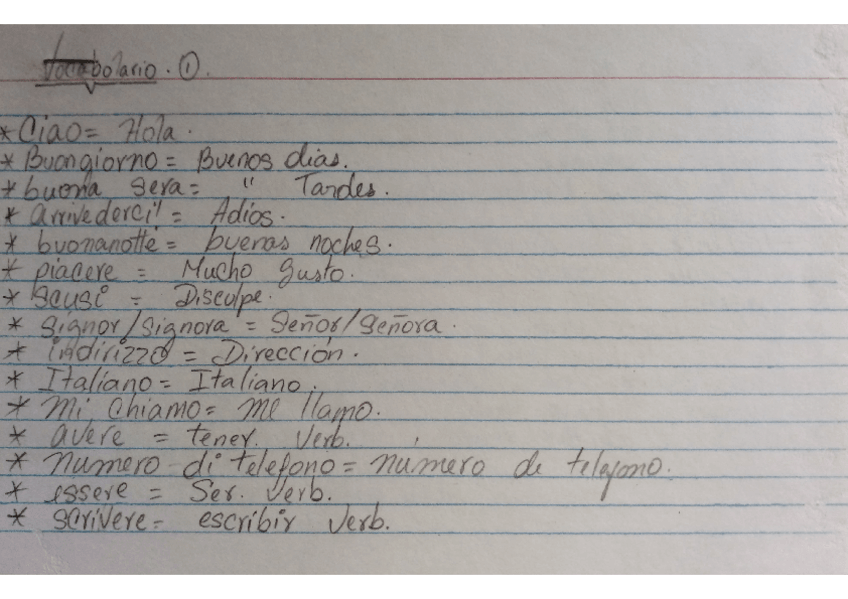 Vocabolario. ①.
* Ciao = Hola.
* Buongiorno = Buenos dias.
* buona sera = " Tardes.
* arrivederci = Adios.
* buonanotte = buenas noches.
* piacere = Mucho gusto.
* Scusi = Disculpe.
* Signor/Signora = Señor/Señora.
* indirizzo = Dirección.
* Italiano = Italiano.
* Mi chiamo = me llamo.
* avere = tener. Verb.
* numero di telefono = numero de telefono.
* essere = Ser. Verb.
* scrivere = escribir Verb.